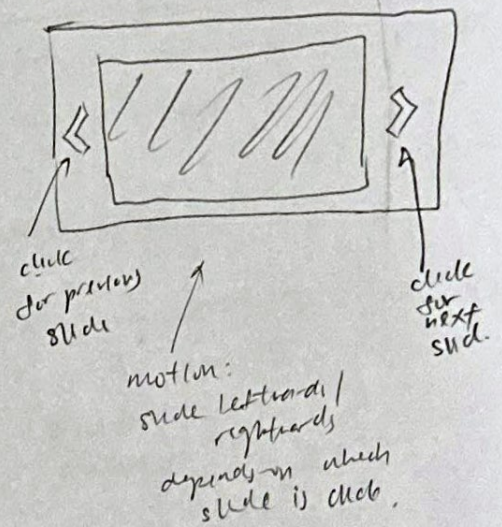 click
for previous
slide
click
for
next
slid.
motion:
slide leftwards/
rightwards
depends on which
slide is click.